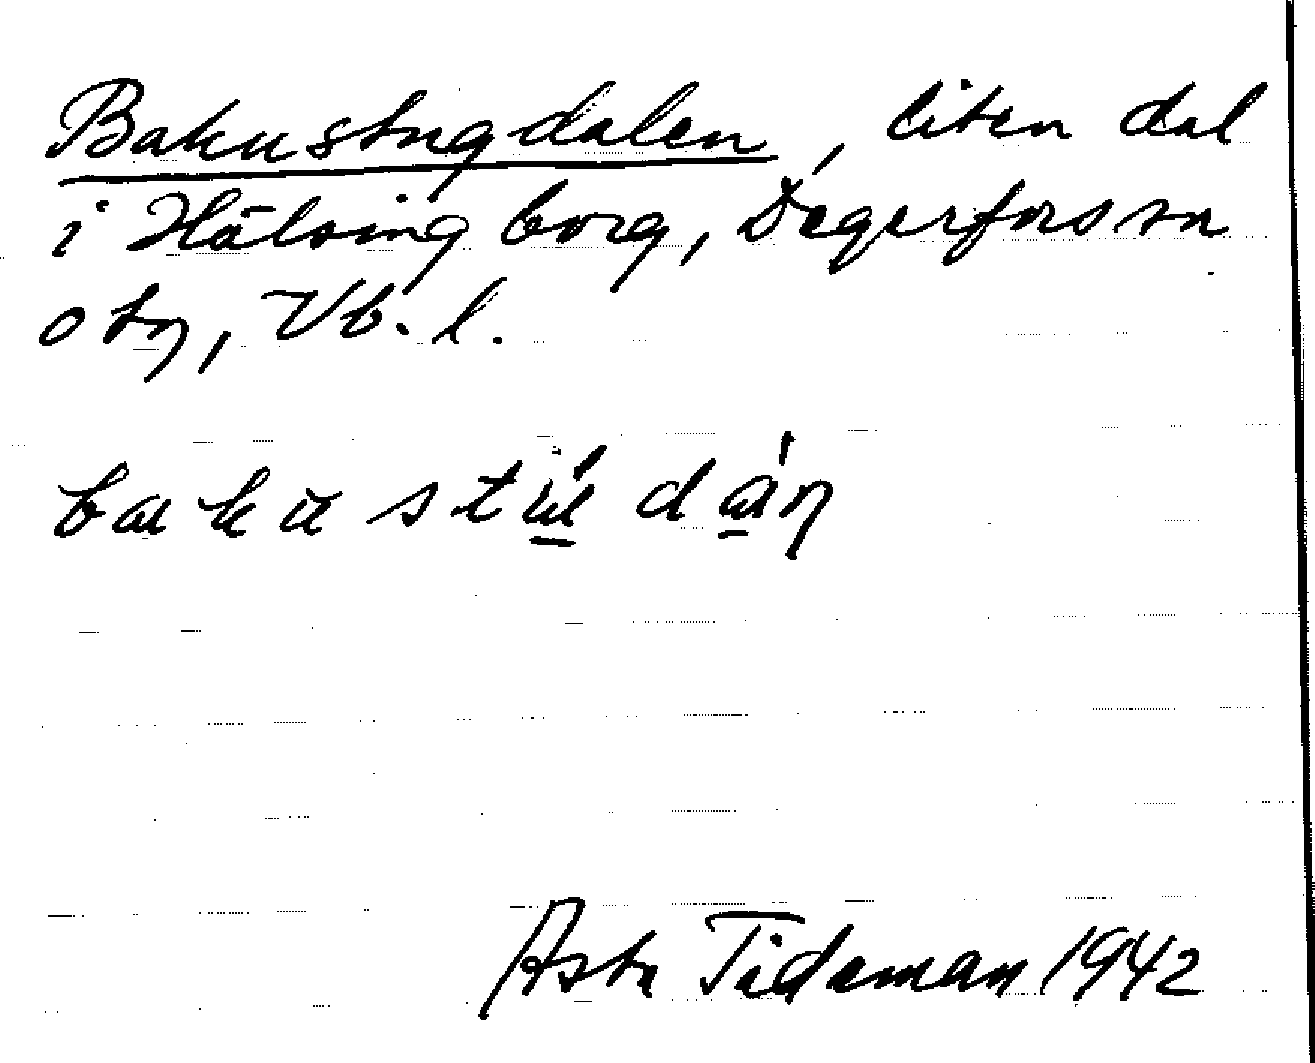 Bakustugdalen, liten dal
i Hälsingborg, Degerfors sn
otg, Vb. l.
Asta Tideman 1942